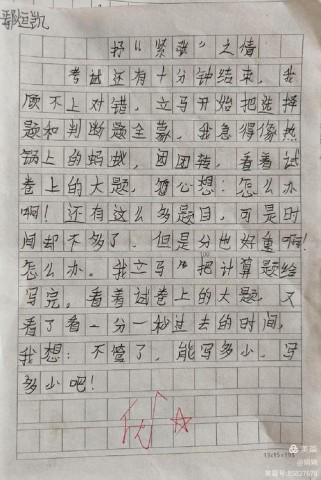 鄢恒凯
抒“紧张”之情
考试还有十分钟结束，我
顾不上对错，立马开始把选择
题和判断题全蒙，我急得像热
锅上的蚂蚁，团团转，看着试
卷上的大题，心想：怎么办
啊！还有这么多题目，可是时
间却不多了，但是分也好重啊！
怎么办。我立马把计算题给
写完。看着试卷上的大题，又
看了看一分一秒过去的时间，
我想：不管了，能写多少，写
多少吧！
13×15=195
美篇